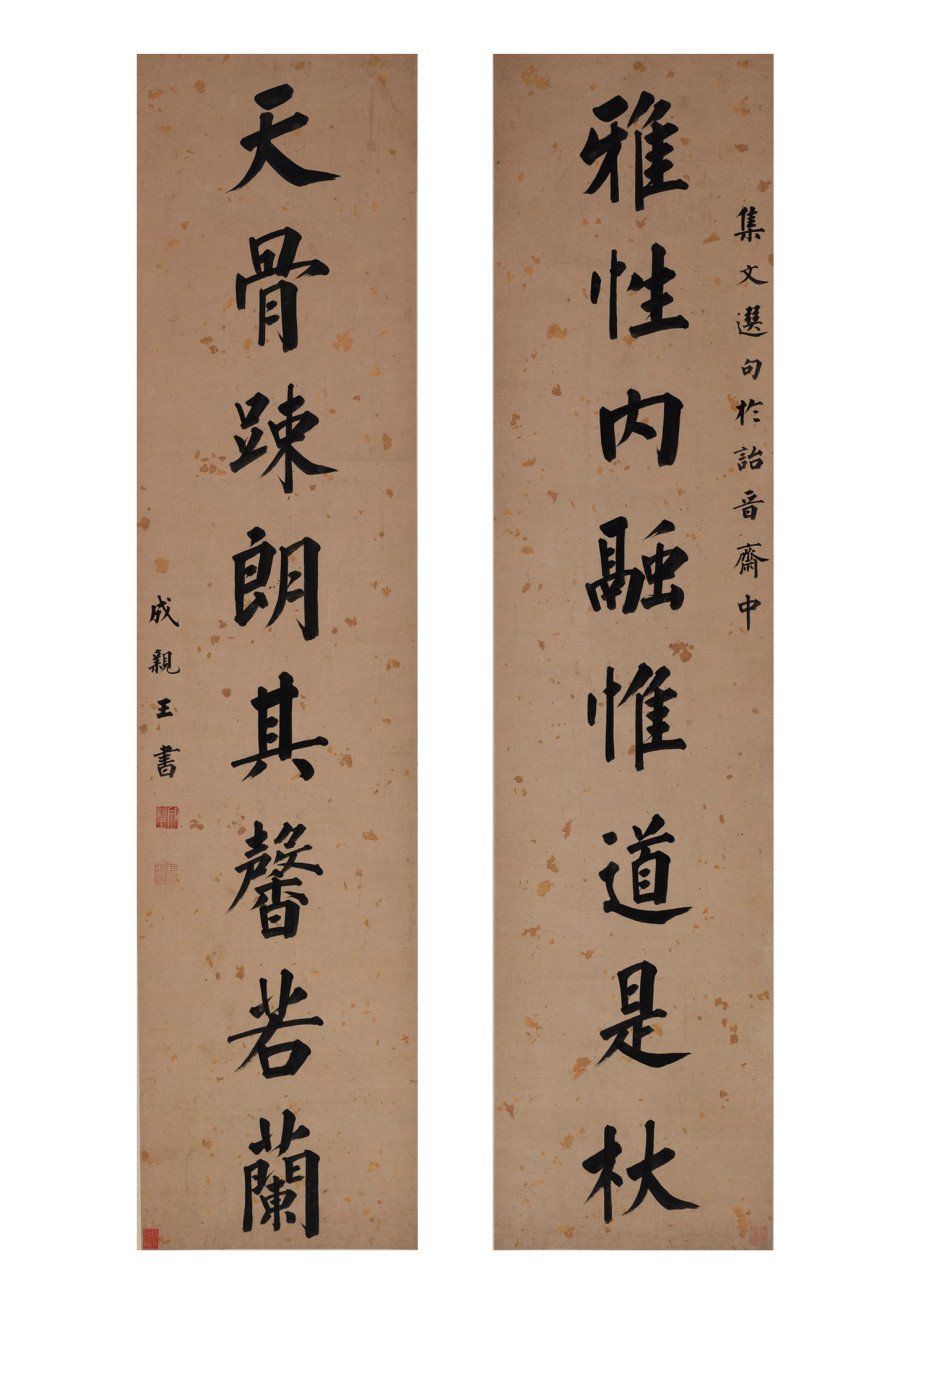 集文選句於詒晉齋中
雅性内融惟道是杖
天骨踈朗其馨若蘭
成親王書